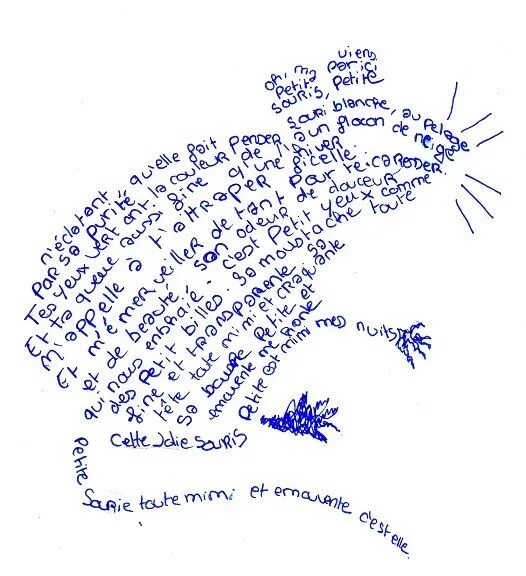 oh, ma
petite
souris,
viens
par ici
petite
souri blanche, au pelage
n'éclatant, qu'elle fait penser à un flocon de neige
par sa pureté, la couleur de l'hiver
Tes yeux vert ont
Et ta queue aussi fine q'une ficelle.
m'appelle à t'attraper pour te caresser
Et m'émerveiller de tant de douceur
et de beauté, son odeur
qui nous . c'est Petit yeux comme
des Petit billes. sa moustache toute
fine et transparente, sa
tête toute mimi et craquante
sa petite et
emouvente me
Petite est mimi mes nuits
Cette Jolie souris
Petite
Sourie toute mimi et emouvente c'est elle.